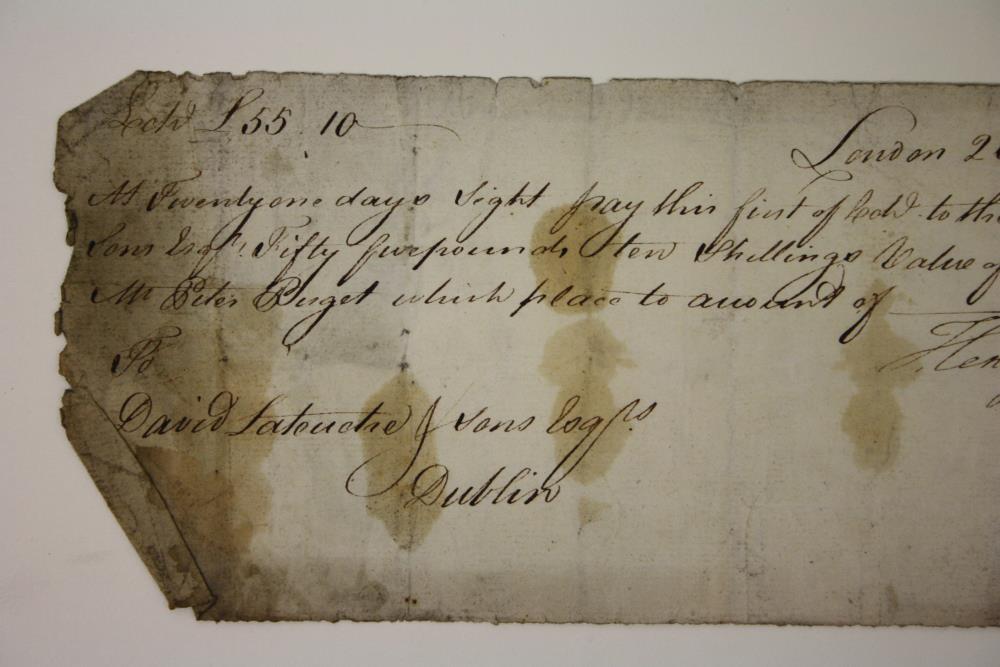 Exch.ᵈ £55 . 10
London 2
At Twenty one days Sight pay this first of Exch.ᵈ to th
Sons Esqʳˢ. Fifty five pounds ten Shillings Value of
Mʳ Peter Puget which place to account of
To
David Latouche & Sons Esqʳˢ.
Dublin